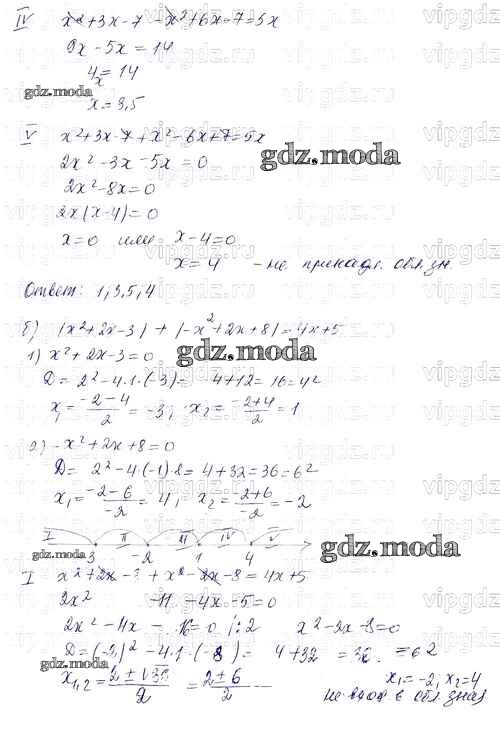 IV x²+3x-7-x²+6x-7=5x
9x-5x=14
4x=14
gdz.moda
x=3,5
V x²+3x-7+x²-6x+7=5x
gdz.moda
2x²-3x-5x=0
2x²-8x=0
2x(x-4)=0
x=0 или x-4=0
x=4 - не принадл. обл. зн.
Ответ: 1, 3,5, 4
б) |x²+2x-3|+|-x²+2x+8|=4x+5
1) x²+2x-3=0
gdz.moda
D=2²-4·1·(-3)=4+12=16=4²
x₁=(-2-4)/2=-3; x₂=(-2+4)/2=1
2) -x²+2x+8=0
D=2²-4·(-1)·8=4+32=36=6²
x₁=(-2-6)/-2=4; x₂=(-2+6)/-2=-2
I II III IV V
3 -2 1 4
gdz.moda
gdz.moda
I x²+2x-3+x²-2x-8=4x+5
2x² -11-4x-5=0
2x²-4x-16=0 |:2 x²-2x-8=0
D=(-2)²-4·1·(-8)=4+32=36=6²
gdz.moda
x₁,₂=(2±√36)/2=(2±6)/2 x₁=-2, x₂=4
не вход в обл. знач